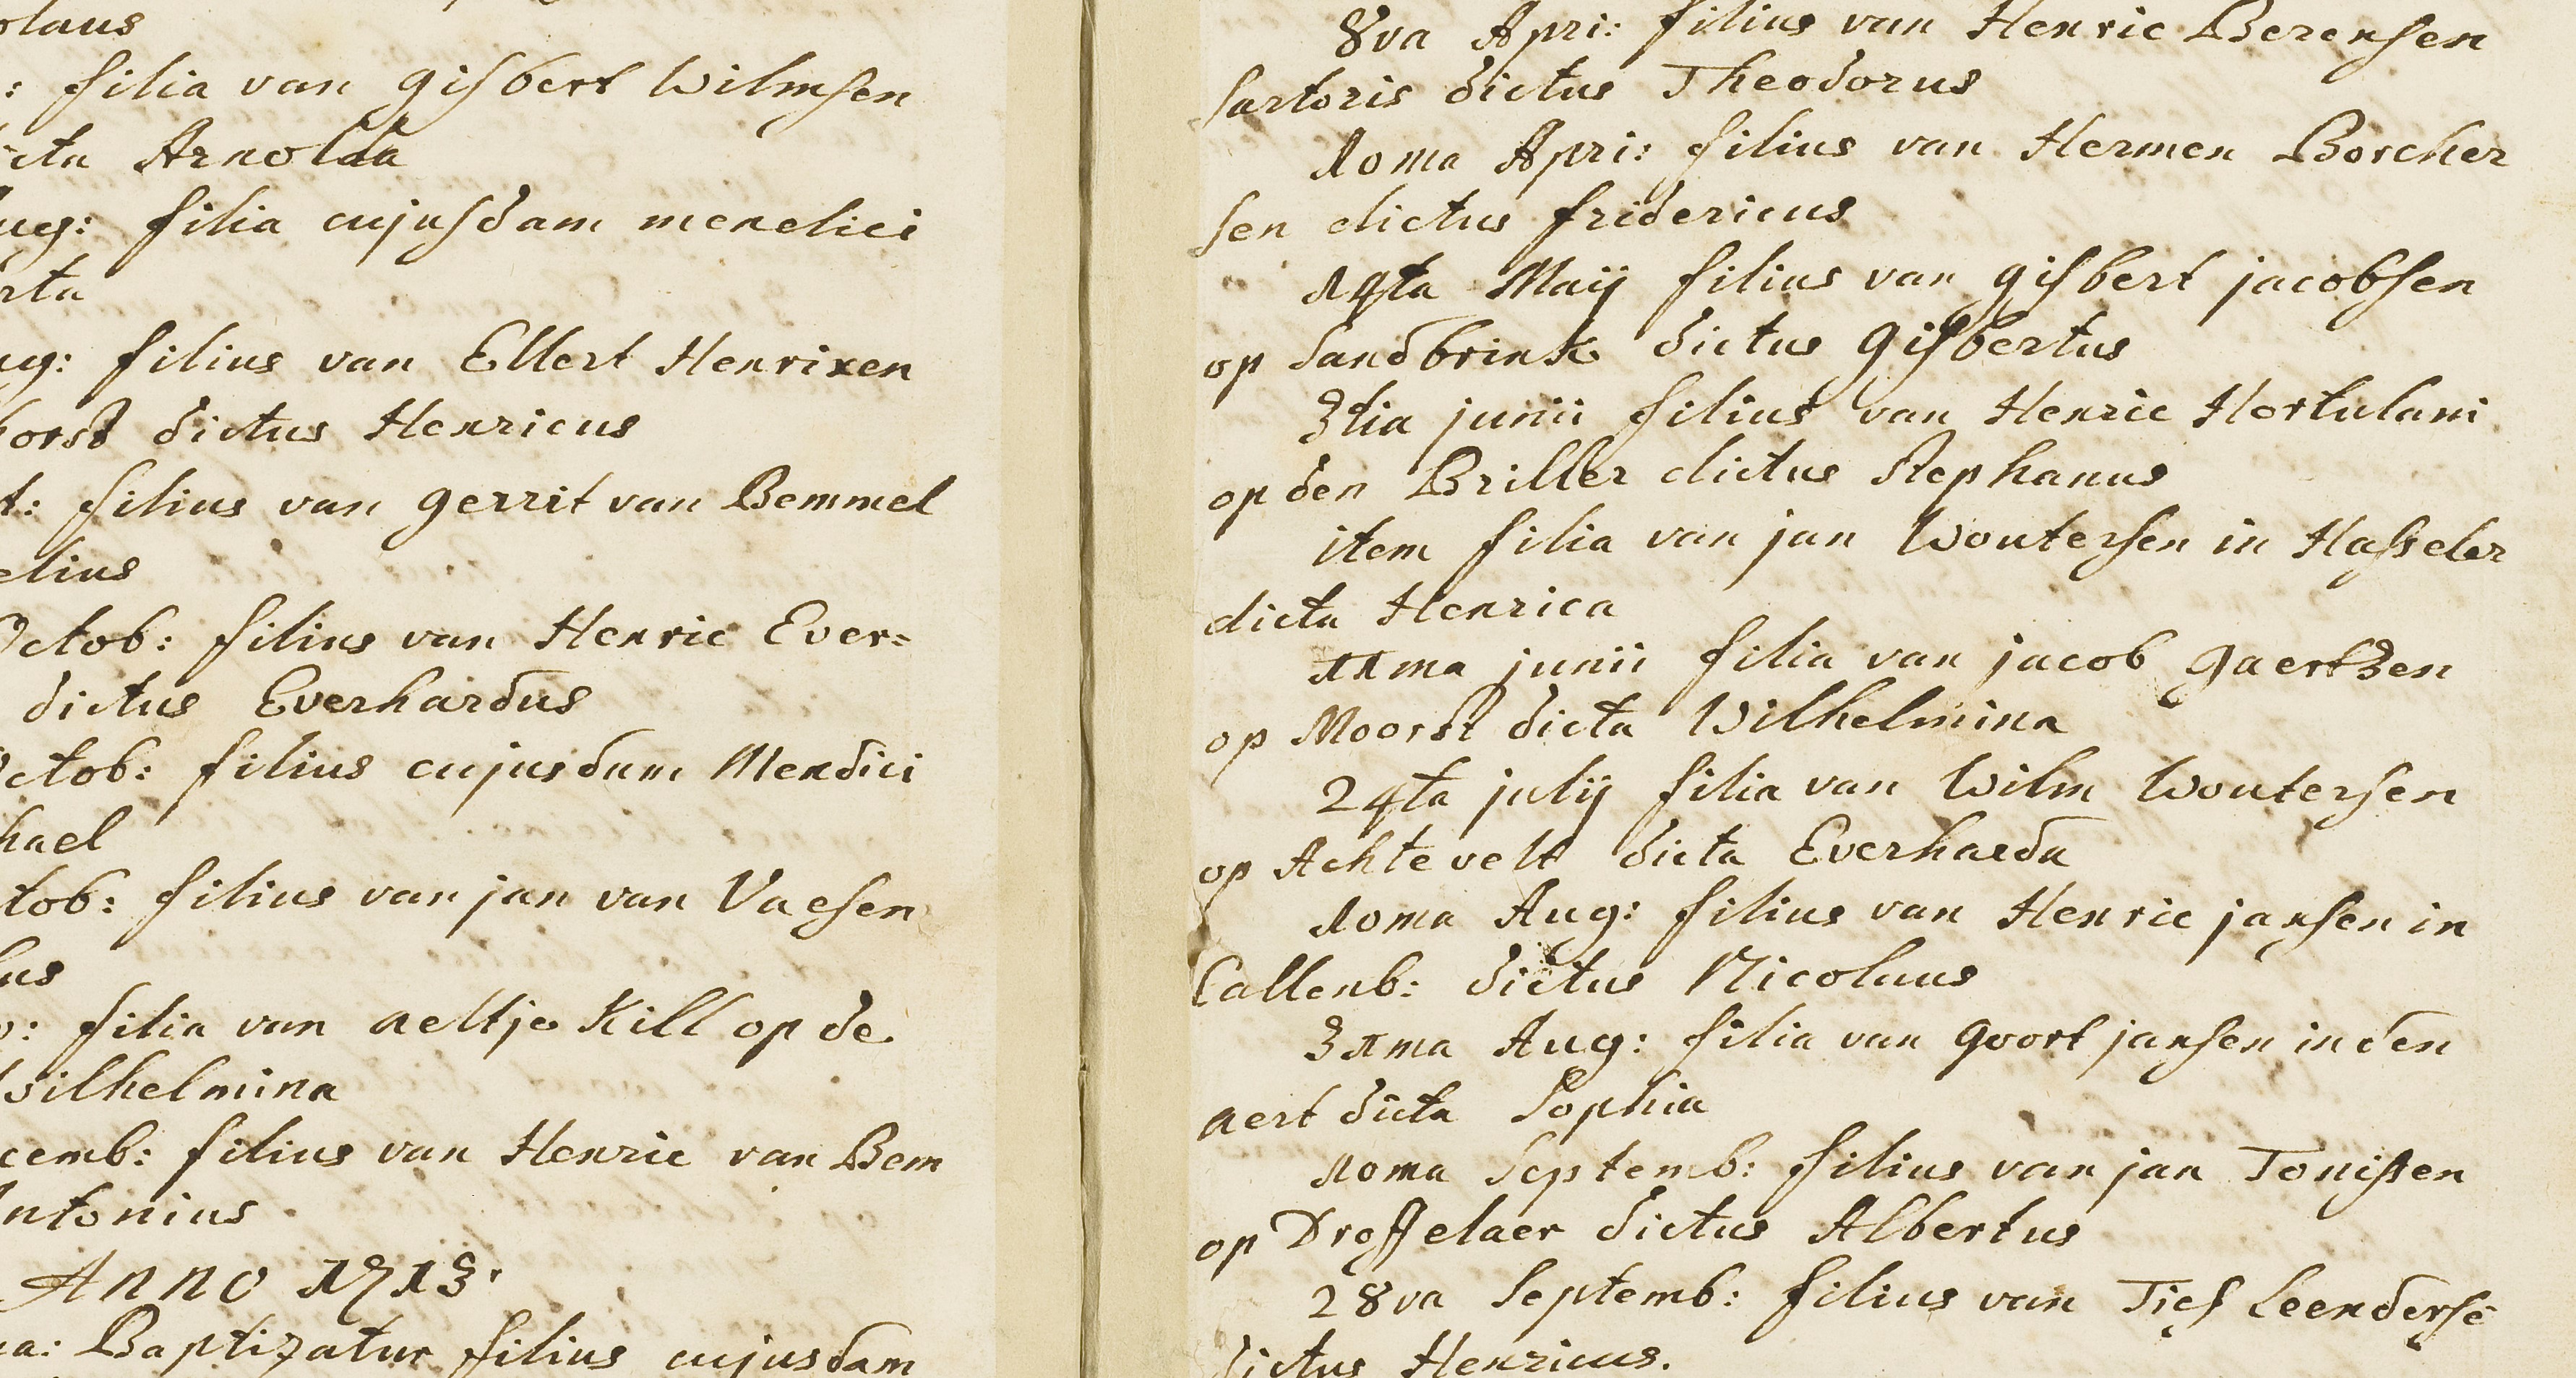 olaus
: filia van gisbert Wilmsen
cta Arnolda
ug: filia cujusdam mendici
rta
ug: filius van Ellert Henrixen
horst dictus Henricus
t: filius van gerrit van Bemmel
elius
Octob: filius van Henric Ever=
dictus Everhardus
ctob: filius cujusdam Mendici
hael
tob: filius van jan van Vaesen
us
: filia van aeltje Kill op de
Wilhelmina
cemb: filius van Henric van Bem
Antonius
Anno 1713.
a: Baptizatur filius cujusdam
8va Apri: filius van Henric Berensen
sartoris dictus Theodorus
10ma Apri: filius van Hermen Borcher
sen dictus fridericus
14ta Maij filius van gisbert jacobsen
op Sandbrink dictus Gisbertus
3tia junii filius van Henric Hortulani
op den Briller dictus Stephanus
item filia van jan Woutersen in Hasseler
dicta Henrica
11ma junii filia van jacob gaertzen
op Moorst dicta Wilhelmina
24ta julij filia van Wilm Woutersen
op Achtevelt dicta Everharda
10ma Aug: filius van Henric jansen in
Callenb: dictus Nicolaus
31ma Aug: filia van goort jansen in den
aert dicta Sophia
10ma Septemb: filius van jan Tonissen
op Dreffelaer dictus Albertus
28va Septemb: filius van Ties Leendersē
dictus Henricus.